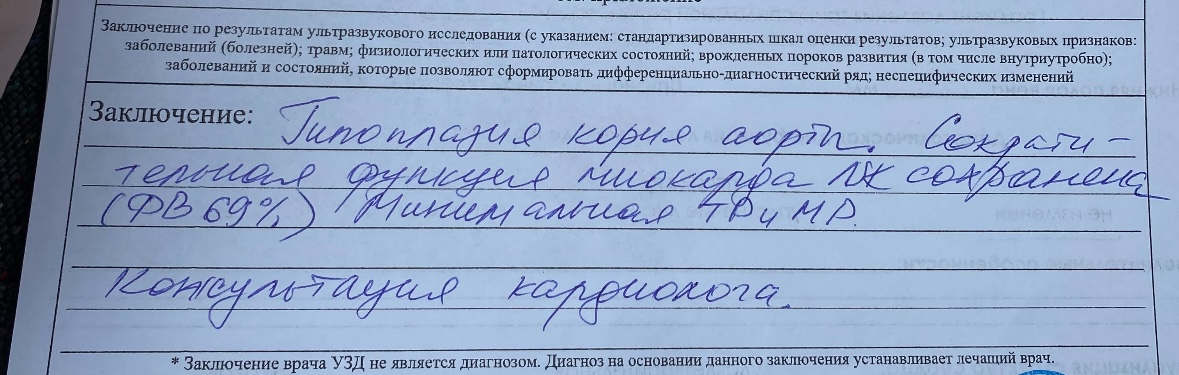 Заключение по результатам ультразвукового исследования (с указанием: стандартизированных шкал оценки результатов; ультразвуковых признаков:
заболеваний (болезней); травм; физиологических или патологических состояний; врожденных пороков развития (в том числе внутриутробно);
заболеваний и состояний, которые позволяют сформировать дифференциально-диагностический ряд; неспецифических изменений
Заключение: Гипоплазия корня аорты. Сократи-
тельная функция миокарда ЛЖ сохранена
(ФВ 69%) Минимальная ТР и МР.
Консультация кардиолога.
* Заключение врача УЗД не является диагнозом. Диагноз на основании данного заключения устанавливает лечащий врач.